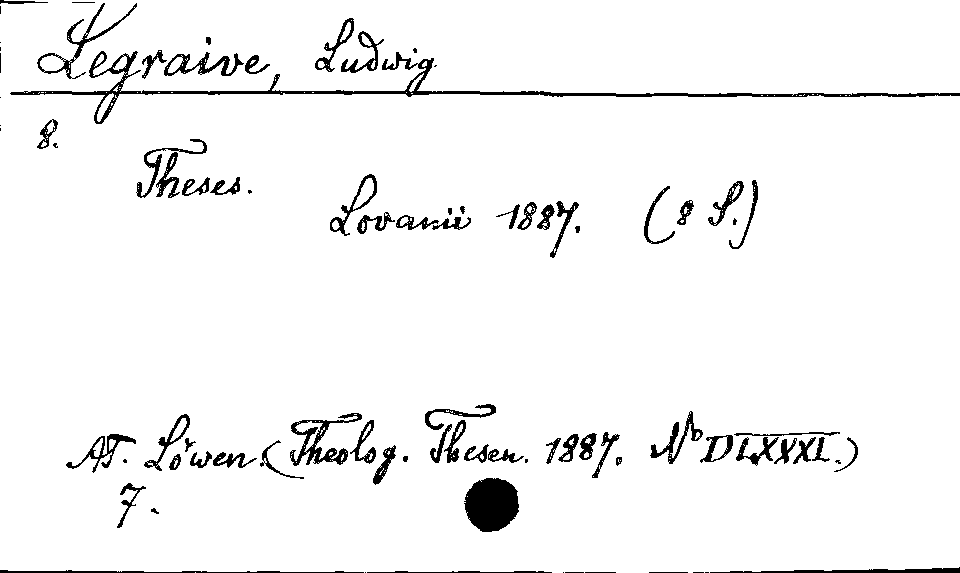 Legraive, Ludwig
8.
Theses.
Lovanii 1887. (8 S.)
AT. Löwen. (Theolog. Thesen. 1887. No DLXXXI.)
7.